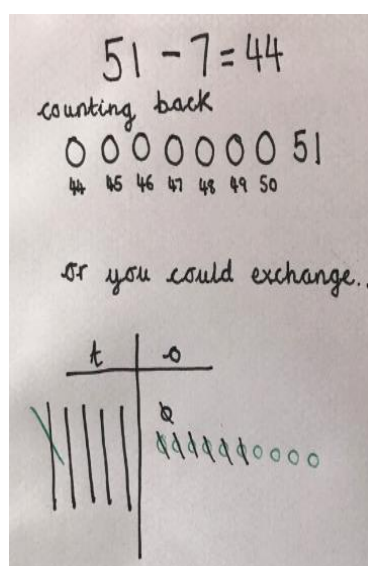 51 - 7 = 44
counting back
0 0 0 0 0 0 0 51
44 45 46 47 48 49 50
or you could exchange..
t o